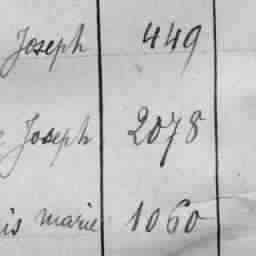 Joseph 449
Joseph 2078
is marie 1060